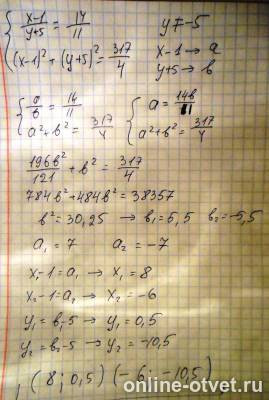 { (x-1)/(y+5) = 14/11   y≠-5
(x-1)² + (y+5)² = 317/4   x-1 → a
y+5 → b
{ a/b = 14/11   { a = 14b/11
a² + b² = 317/4   a² + b² = 317/4
196b²/121 + b² = 317/4
784b² + 484b² = 38357
b² = 30,25 → b₁ = 5,5   b₂ = -5,5
a₁ = 7   a₂ = -7
x₁-1 = a₁ → x₁ = 8
x₂-1 = a₂ → x₂ = -6
y₁ = b₁-5 → y₁ = 0,5
y₂ = b₂-5 → y₂ = -10,5
, (8; 0,5) (-6; -10,5)
online-otvet.ru